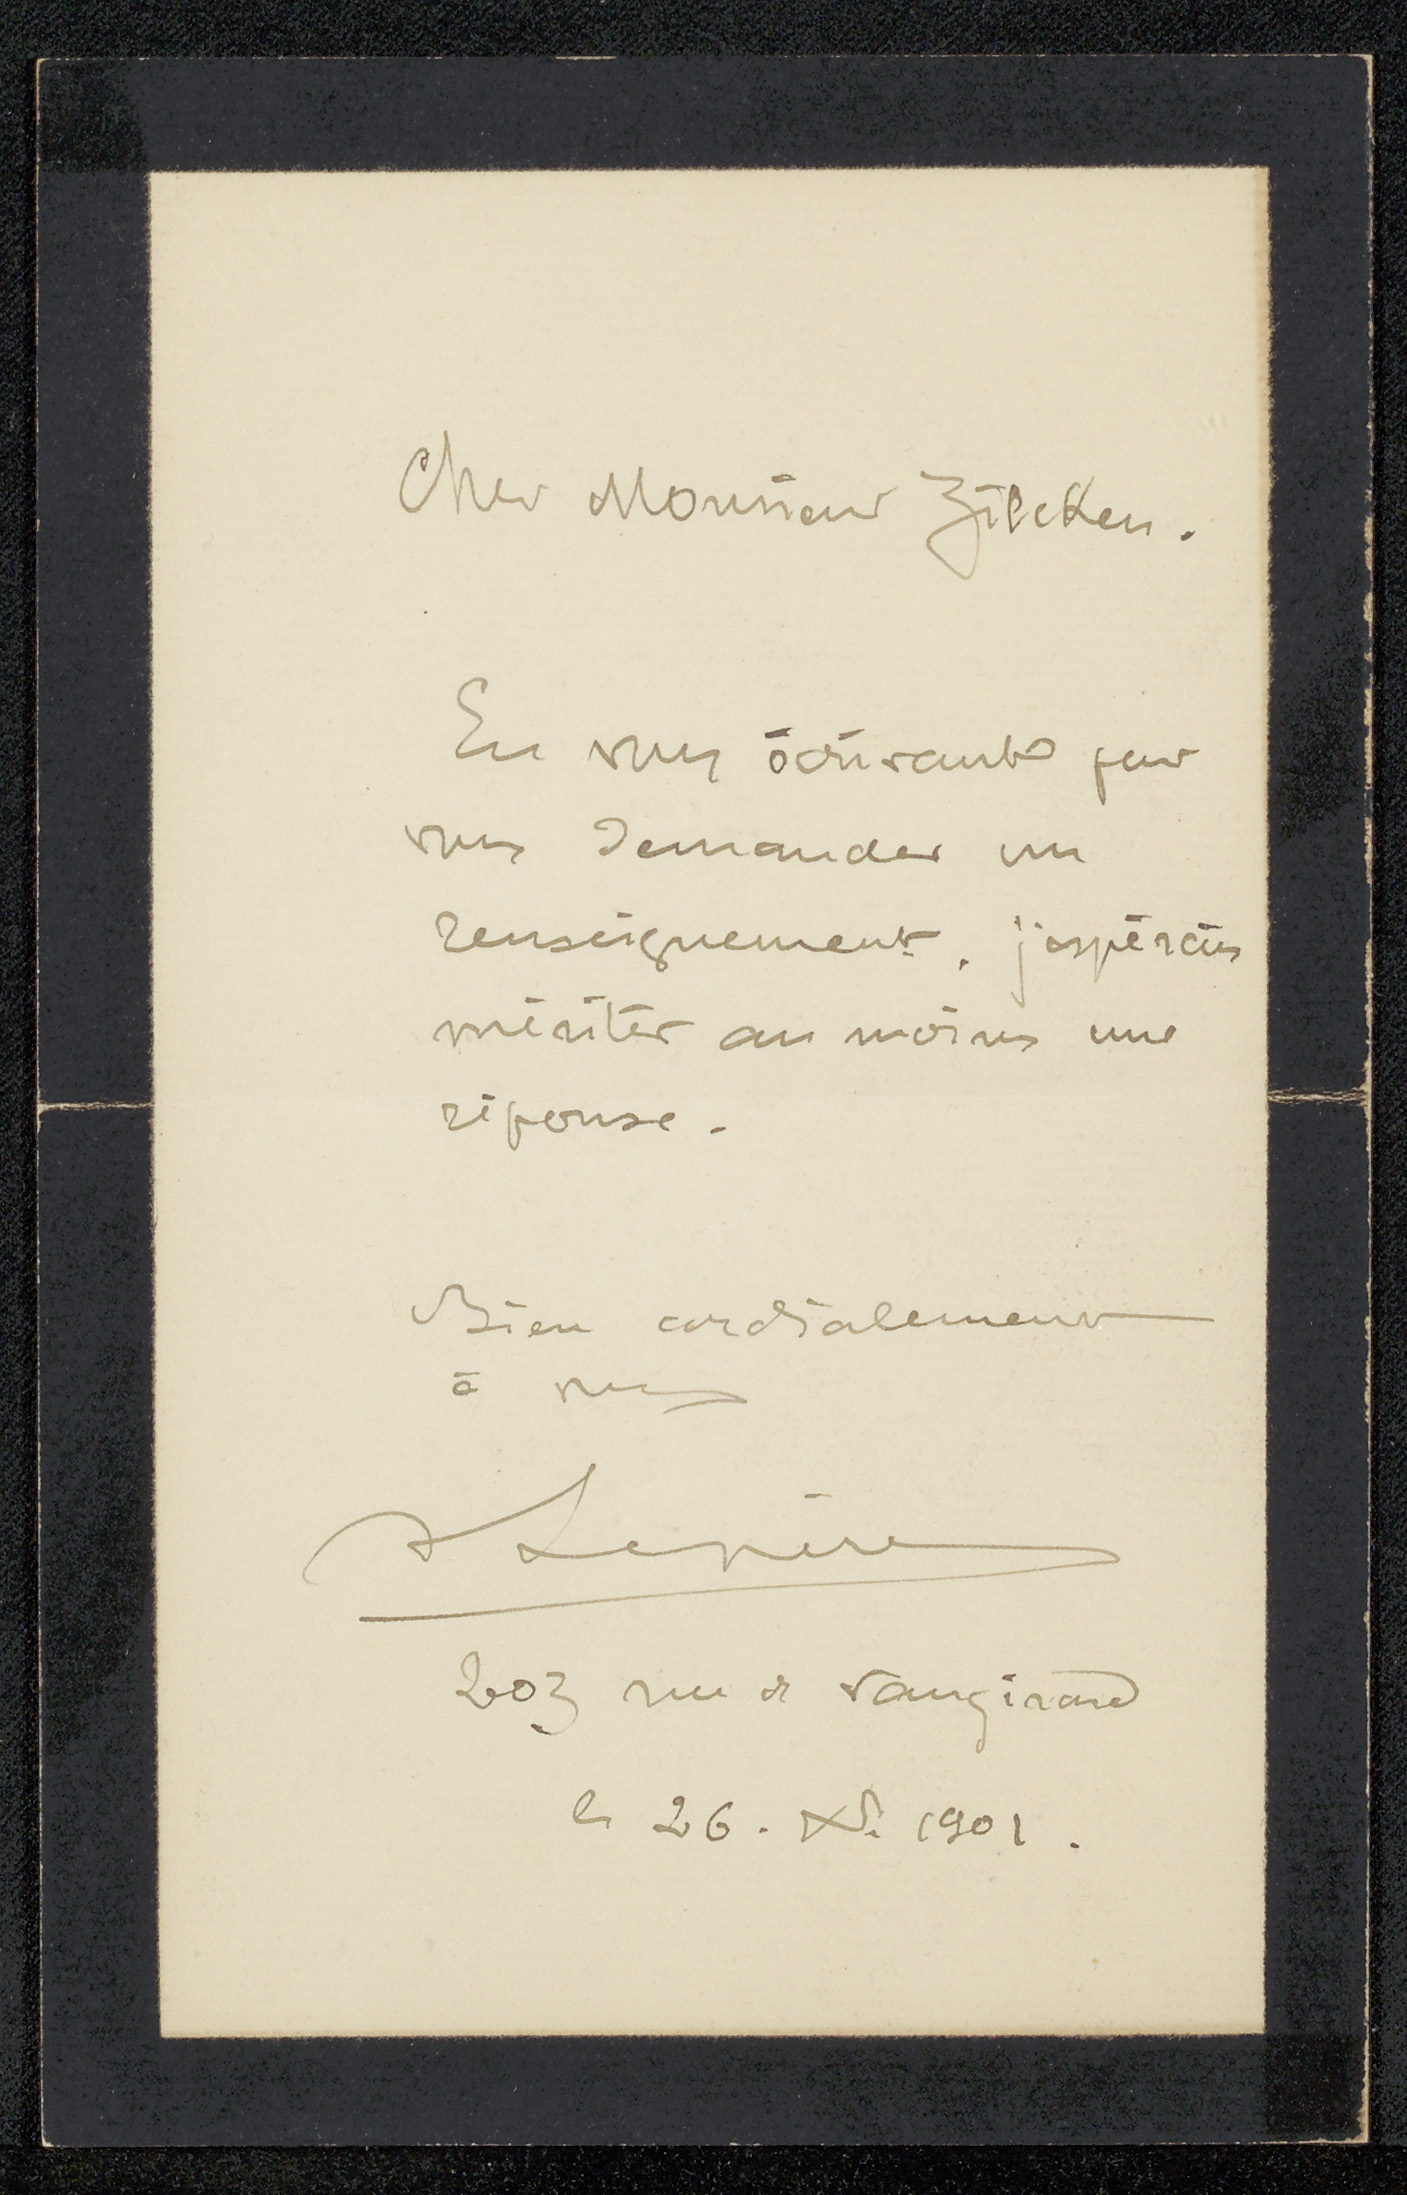 Cher Monsieur Zilcken.
En vous écrivant pour
vous demander un
renseignement, j'espérais
mériter au moins une
réponse.
Bien cordialement
à vous
A Lepère
203 rue de Vaugirard
le 26. 1901.